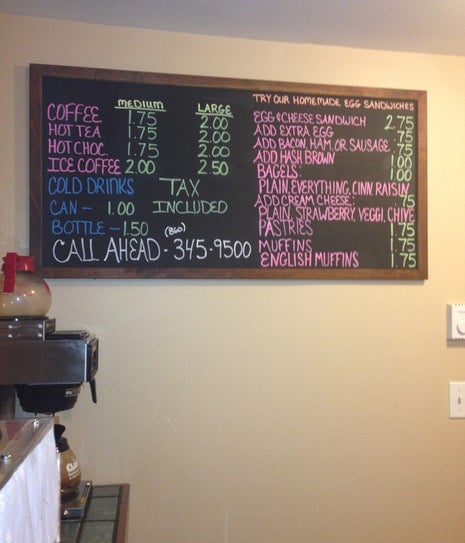 MEDIUM LARGE
COFFEE 1.75 2.00
HOT TEA 1.75 2.00
HOT CHOC. 1.75 2.00
ICE COFFEE 2.00 2.50
COLD DRINKS TAX
CAN - 1.00 INCLUDED
BOTTLE - 1.50
CALL AHEAD - (860) 345-9500
TRY OUR HOMEMADE EGG SANDWICHES
EGG & CHEESE SANDWICH 2.75
ADD EXTRA EGG .75
ADD BACON, HAM, OR SAUSAGE .75
ADD HASH BROWN 1.00
BAGELS: 1.00
PLAIN, EVERYTHING, CINN. RAISIN
ADD CREAM CHEESE: .75
PLAIN, STRAWBERRY, VEGGI, CHIVE
PASTRIES 1.75
MUFFINS 1.75
ENGLISH MUFFINS 1.75